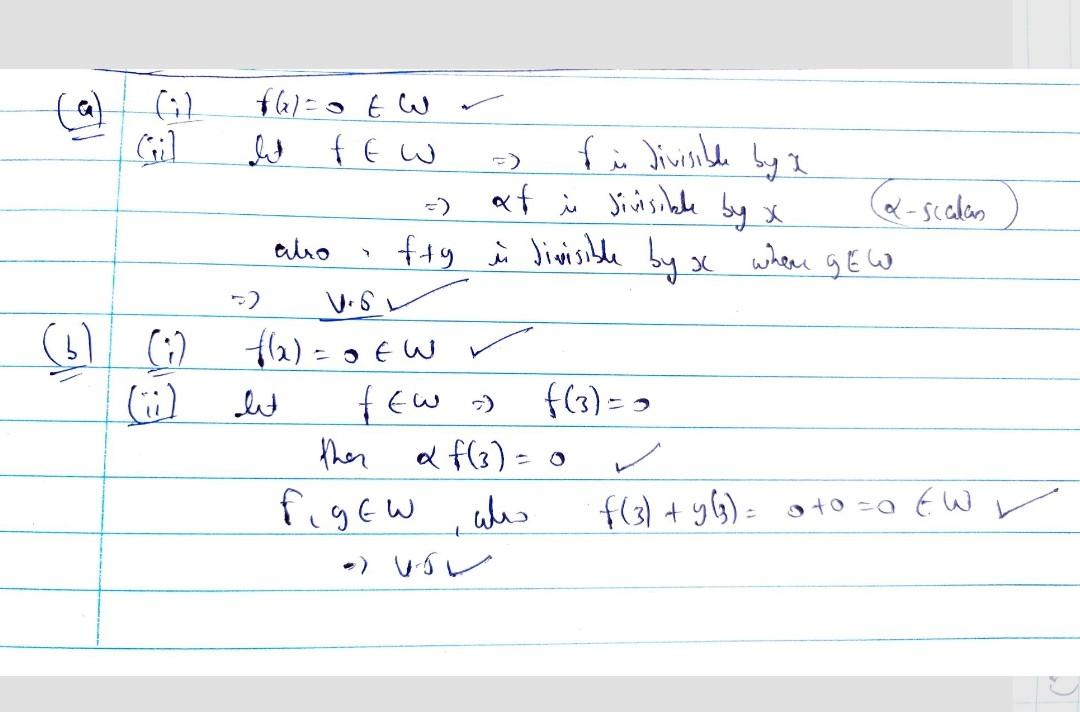 (a) (i) f(x)=0 ∈ W ✓
(ii) let f ∈ W => f is divisible by x
=> αf is divisible by x (α-scalar)
also, f+g is divisible by x where g ∈ W
=> V.S ✓
(b) (i) f(x) = 0 ∈ W ✓
(ii) let f ∈ W => f(3)=0
then α f(3) = 0 ✓
f, g ∈ W, also f(3) + g(3) = 0+0=0 ∈ W ✓
=> V.S ✓